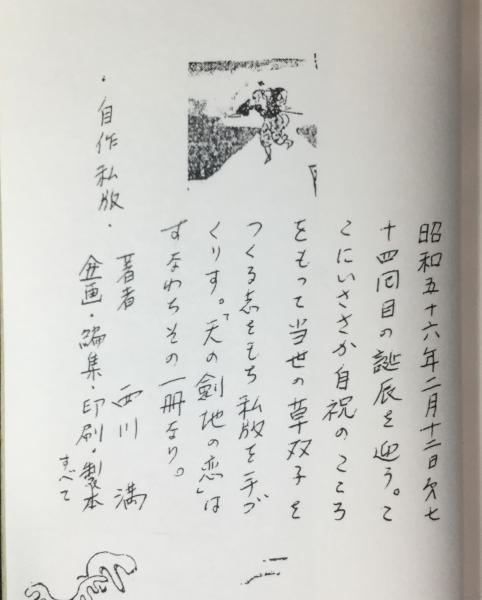 昭和五十六年二月十二日我七
十四回目の誕辰を迎う。こ
こにいささか自祝のこころ
をもって当世の草双子を
つくる志をもち私版を手づ
くりす。「天の剣地の恋」は
すなわちその一冊なり。
著者 西川 満
企画・編集・印刷・製本
すべて
・自作私版・